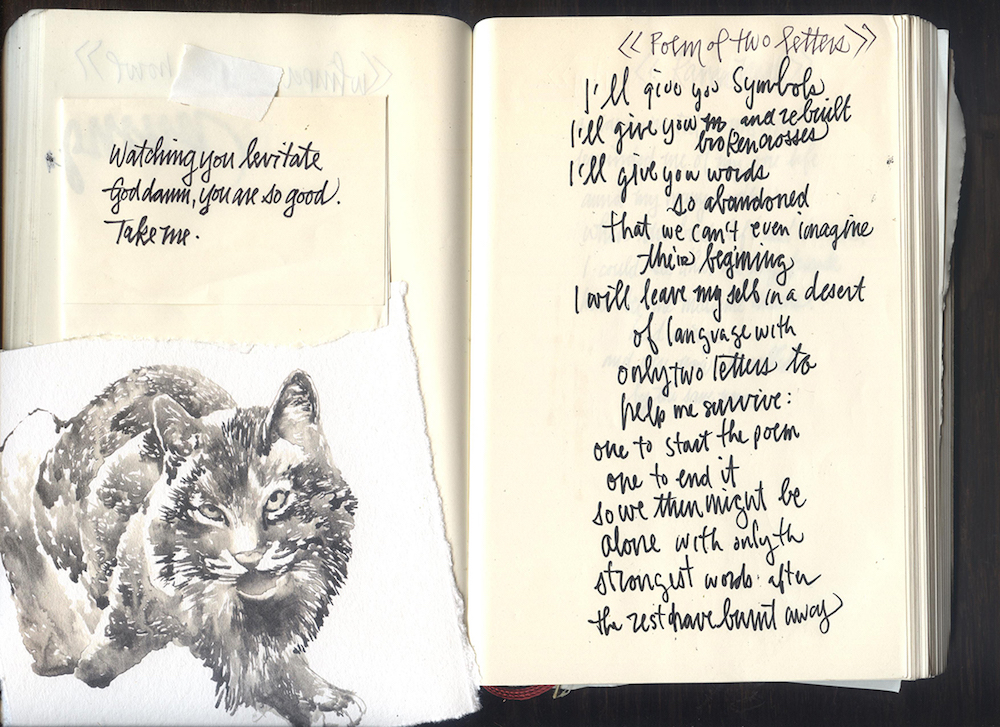 Watching you levitate
Goddamn, you are so good.
Take me.
<< Poem of two letters >>
I'll give you symbols
I'll give you and rebuilt
broken crosses
I'll give you words
so abandoned
that we can't even imagine
their begining
I will leave my self in a desert
of language with
only two letters to
help me survive:
one to start the poem
one to end it
so we then might be
alone with only th
strongest words after
the rest have burnt away